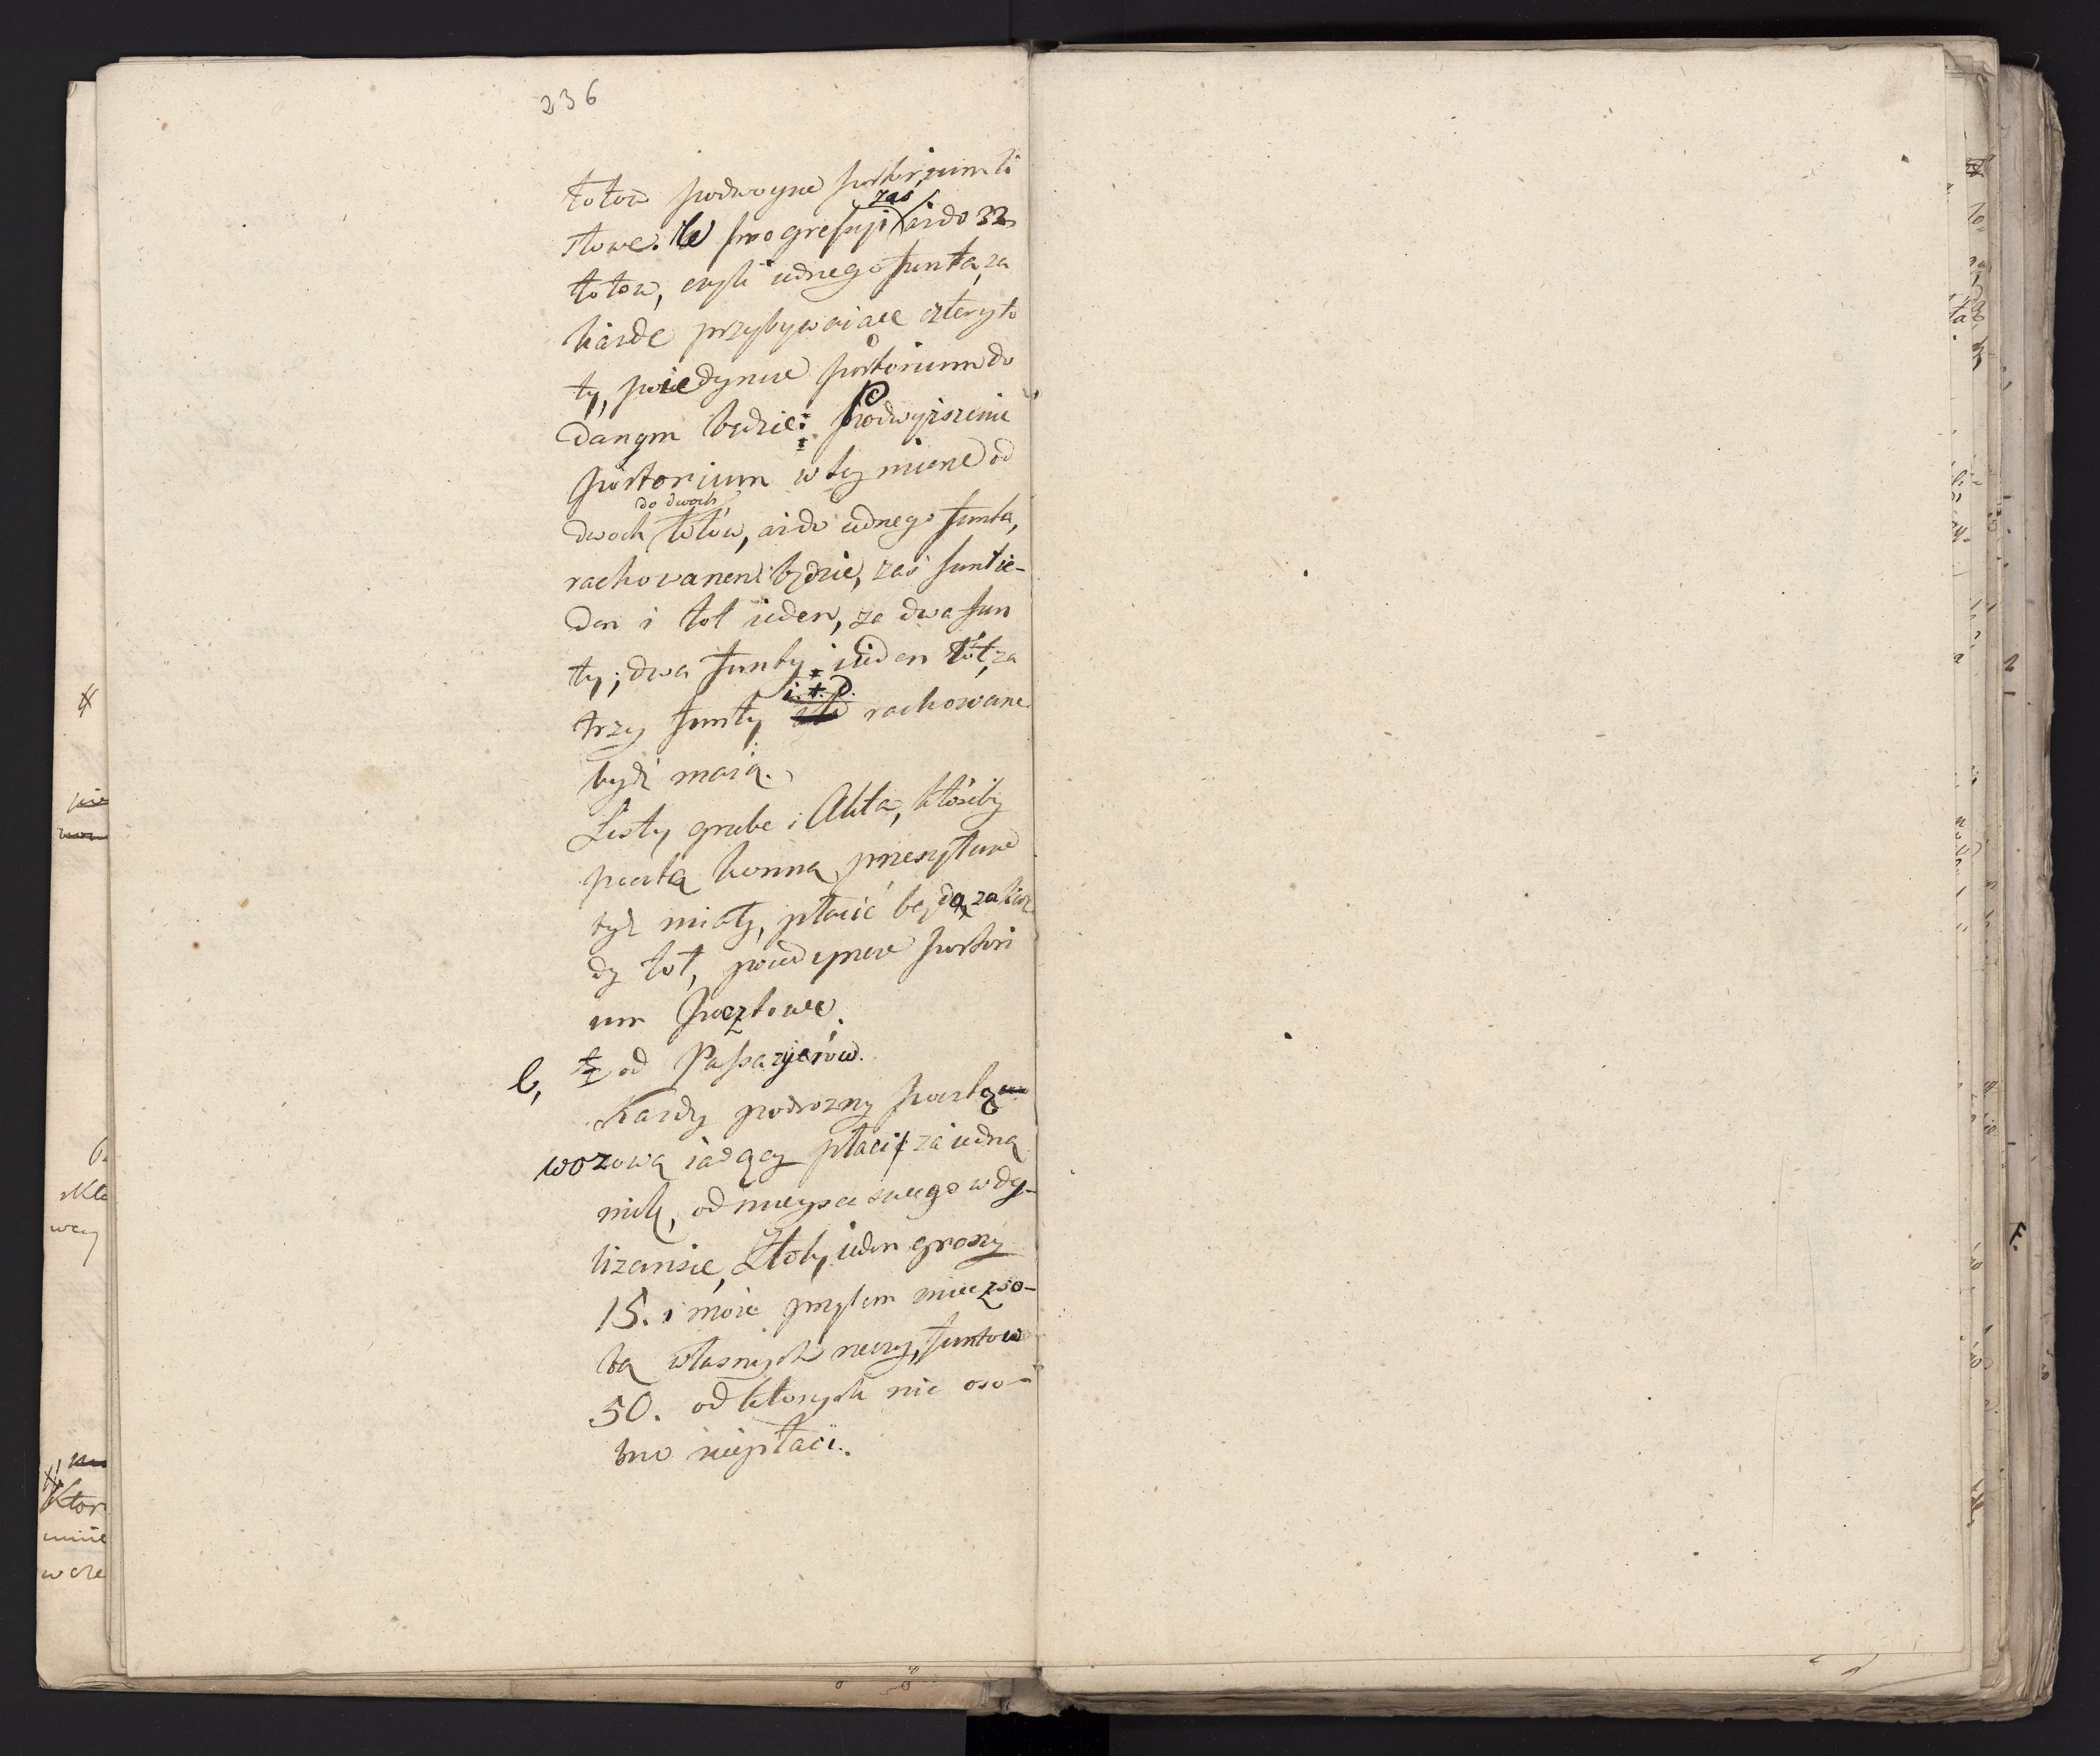 236
łotow podwoyne portorium li
stowe. W progressyi zaś aż do 32
łotow, czyli iednego funta, za
każde przybywaiące cztery ło
ty, poiedyncze portorium do
danym będzie: Podwyższenie
portorium w tey mierze od
do dwoch
dwoch łotów, aż do iednego funta,
rachowanem będzie, zaś funt ie-
den i łot ieden, za dwa fun
ty; dwa funty i ieden łót, za
trzy funty i. t. d. rachowane
bydź maią.
Listy grube i Akta, któreby
pocztą konną przesyłane
bydź miały, płacić będą, za każ
dy łot, poiedyncze portori
um pocztowe.
b, od Passażyerów.
Każdy podrożny pocztą
wozową iadący płaci za iedną
milę, od mieysca swego w dy-
liżansie, Złoty ieden groszy
15. i może przytem mieć z so-
bą własnych rzeczy, funtow
50. od ktorych nic oso-
bno niepłaci.